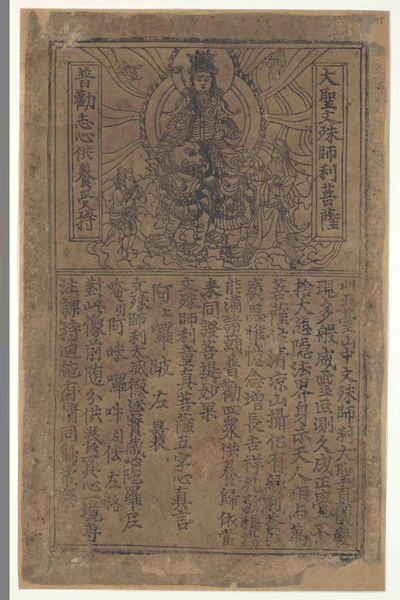 大聖文殊師利菩薩
普勸志心供養受持
此五臺山中文殊師利大聖真儀變
現多般威靈叵測久成正覺不
捨大悲隱法界身示天人相与萬
菩薩住清涼山攝化有緣利益弘
廣思惟憶念增長吉祥礼敬稱揚
能滿諸願普勸四眾供養歸依當
來同證菩提妙果
文殊師利童真菩薩五字心真言
阿上囉跛左曩
文殊師利大威德法寶藏心陀羅尼
唵引阿味囉吽引佉左咯
對此像前随分供養冥心一境專
注課持迴施有情同歸常樂